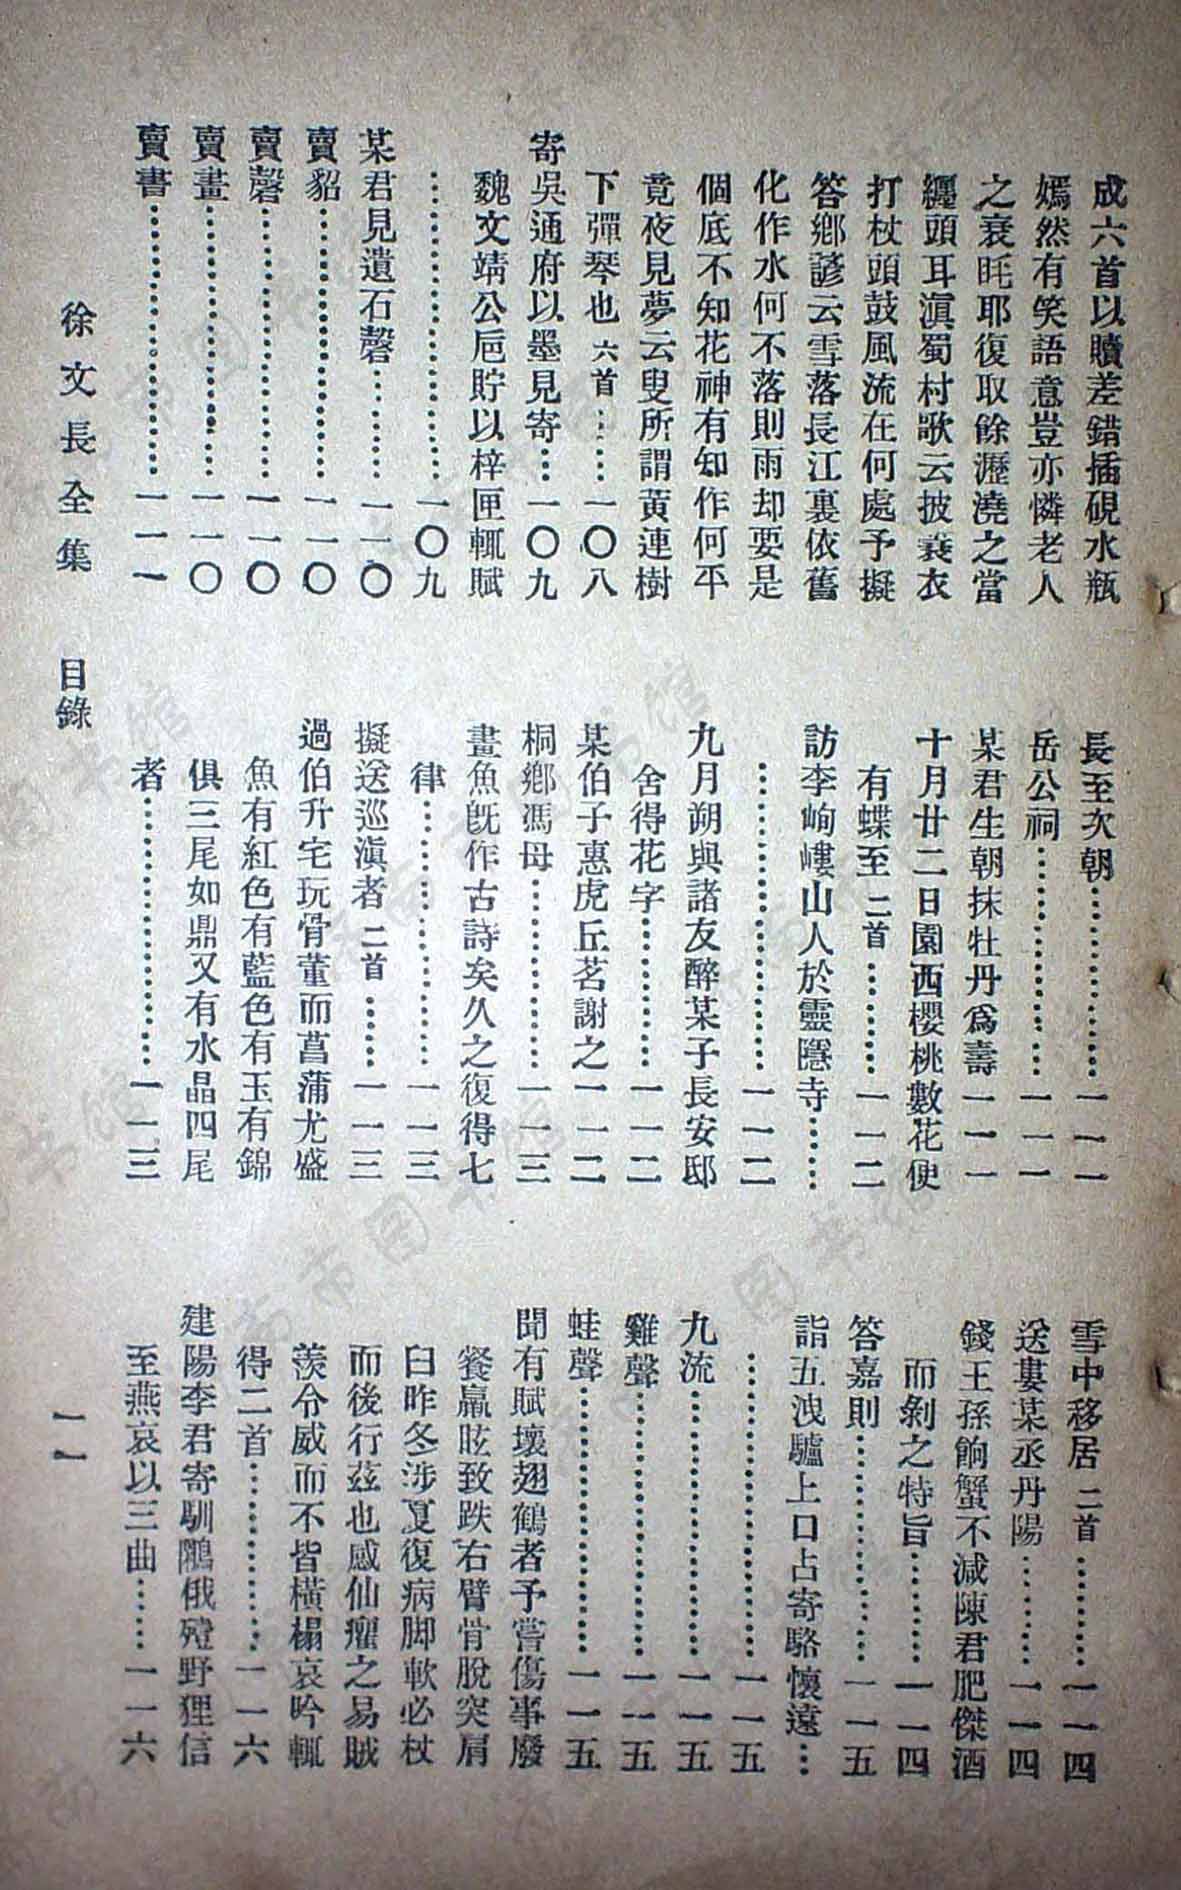 成六首以贖差錯插硯水瓶
嫣然有笑語意豈亦憐老人
之衰眊耶復取餘瀝澆之當
纏頭耳滇蜀村歌云披蓑衣
打杖頭鼓風流在何處予擬
答鄉諺云雪落長江裏依舊
化作水何不落則雨却要是
個底不知花神有知作何平
竟夜見夢云叟所謂黃連樹
下彈琴也 六首……一〇八
寄吳通府以墨見寄…一〇九
魏文靖公巵貯以梓匣輒賦
……………一〇九
某君見遺石磬……一一〇
賣貂……………一一〇
賣磬……………一一〇
賣畫……………一一〇
賣書……………一一一
長至次朝……………一一一
岳公祠……………一一一
某君生朝抹牡丹爲壽一一一
十月廿二日園西櫻桃數花便
有蝶至 二首……一一二
訪李峋嶁山人於靈隱寺……
……………一一二
九月朔與諸友醉某子長安邸
舍得花字………一一二
某伯子惠虎丘茗謝之一一二
桐鄉馮母……………一一三
畫魚旣作古詩矣久之復得七
律……………一一三
擬送巡滇者 二首……一一三
過伯升宅玩骨董而菖蒲尤盛
魚有紅色有藍色有玉有錦
俱三尾如鼎又有水晶四尾
者……………一一三
雪中移居 二首………一一四
送婁某丞丹陽………一一四
錢王孫餉蟹不減陳君肥傑酒
而剝之特旨……一一四
答嘉則……………一一五
詣五洩驢上口占寄駱懷遠…
……………一一五
九流……………一一五
雞聲……………一一五
蛙聲……………一一五
聞有賦壞翅鶴者予嘗傷事廢
餐羸眩致跌右臂骨脫突肩
臼昨冬涉夏復病脚軟必杖
而後行茲也感仙癯之易賊
羨令威而不皆橫榻哀吟輒
得二首…………一一六
建陽李君寄馴鷴俄殪野狸信
至燕哀以三曲……一一六
徐文長全集 目錄
一一